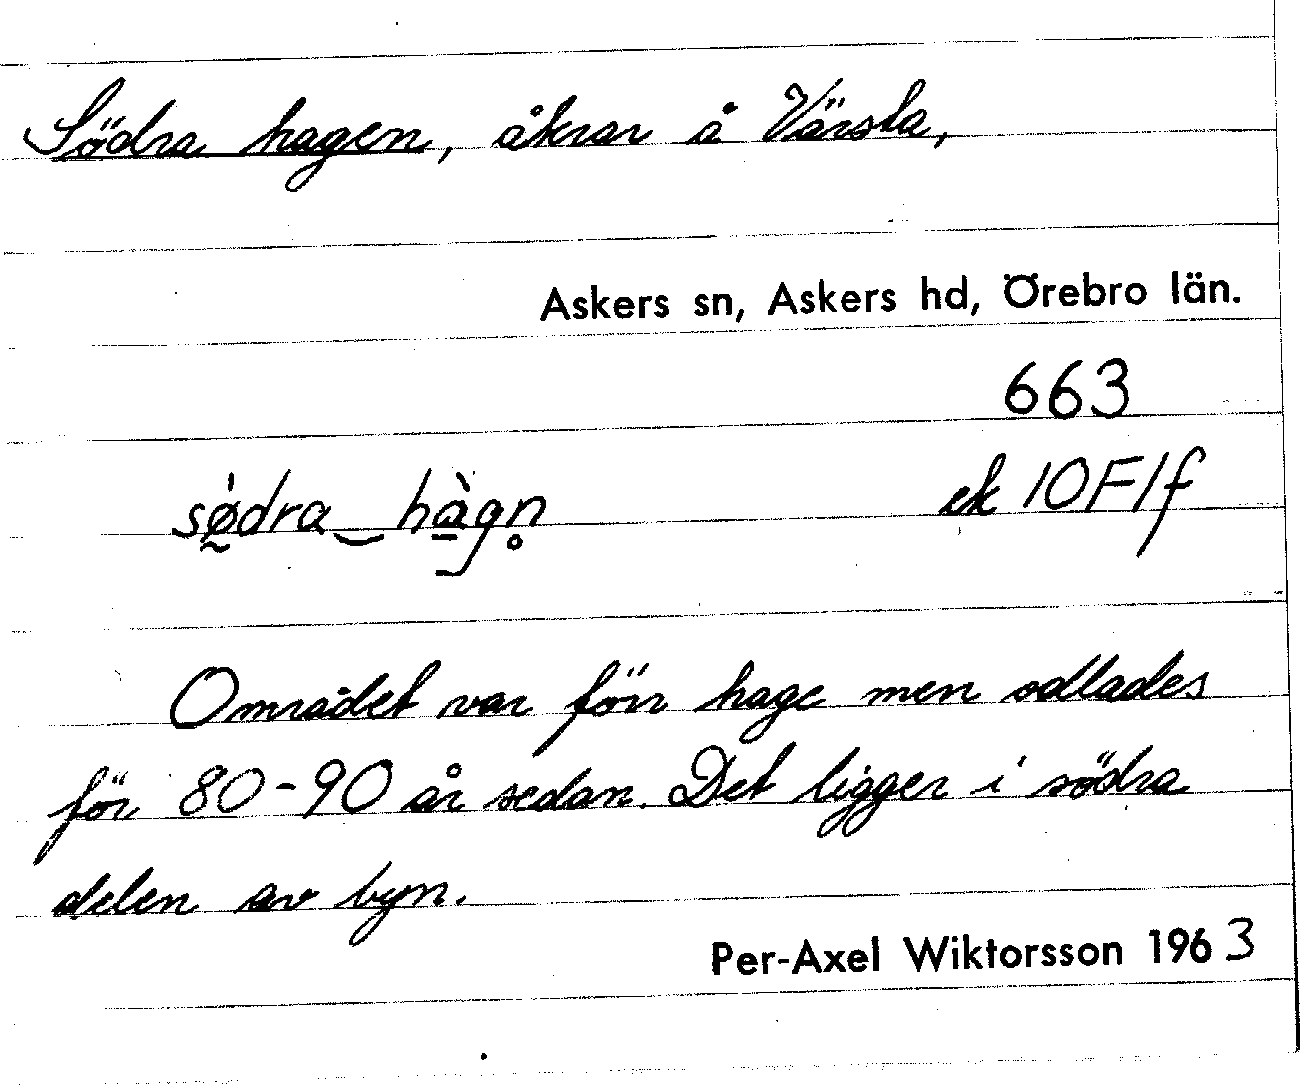 Södra hagen, åkrar å Värsta,
Askers sn, Askers hd, Örebro län.
663
sødra hàgn̥ ek 10F1f
Området var förr hage men odlades
för 80-90 år sedan. Det ligger i södra
delen av byn.
Per-Axel Wiktorsson 1963